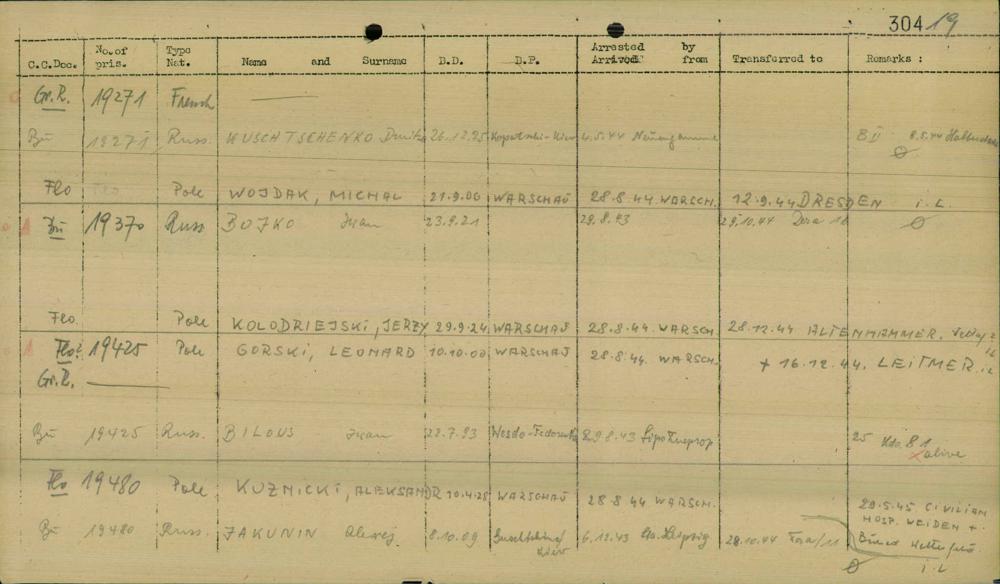 304 19
C.C.Doc. No. of pris. Type Nat. Name and Surname B.D. D.P. Arrested by Arrived from Transferred to Remarks :
Gr.R. 19271 French —
Bu 19271 Russ. KUSCHTSCHENKO 26.12.25 Kiew 4.5.44 Neuengamme B II 8.5.44
Flo Pole WOJDAK, MICHAL 21.9.06 WARSCHAU 28.8.44 WARSCH. 12.9.44 DRESDEN i.L.
Bu 19370 Russ BOJKO Iwan 23.9.21 29.8.43 29.10.44 Dora
Flo. Pole KOLODRIEJSKI, JERZY 29.9.24 WARSCHAU 28.8.44. WARSCH. 28.12.44 ALTENHAMMER.
Flo? 19425 Pole GORSKI, LEONARD 10.10.00 WARSCHAU 28.8.44. WARSCH. + 16.12.44. LEITMER. i.L
Gr.R. —
Bu 19425 Russ. BILOUS Iwan 22.7.23 29.8.43 25 Kdo. 81 alive
Flo 19480 Pole KUZNICKI, ALEKSANDR 10.4.28 WARSCHAU 28 8 44 WARSCH. 29.5.45 CIVILIAN HOSP. WEIDEN +
Bu 19480 Russ. JAKUNIN Alexej 8.10.09 Kiew 6.12.43 Leipzig 28.10.44 i.L